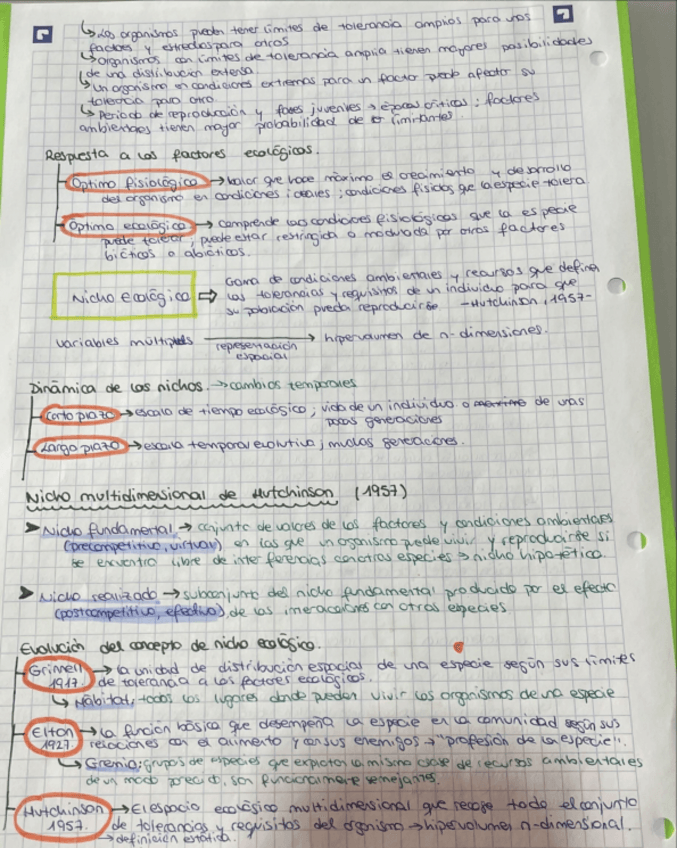 ↳ Los organismos pueden tener límites de tolerancia amplios para unos
factores y estrechos para otros
↳ Organismos con límites de tolerancia amplia tienen mayores posibilidades
de una distribución extensa
↳ Un organismo en condiciones extremas para un factor puede afectar su
tolerancia para otro
↳ Periodo de reproducción y fases juveniles → épocas críticas; factores
ambientales tienen mayor probabilidad de ser limitantes.
Respuesta a los factores ecológicos.
Óptimo fisiológico → valor que hace máximo el crecimiento y desarrollo
del organismo en condiciones ideales; condiciones físicas que la especie tolera
Óptimo ecológico → comprende las condiciones fisiológicas que la especie
puede tolerar; puede estar restringida o modulada por otros factores
bióticos o abióticos.
Nicho ecológico ⇒ Gama de condiciones ambientales y recursos que definen
las tolerancias y requisitos de un individuo para que
su población pueda reproducirse -Hutchinson, 1957-
Variables múltiples → hipervolumen de n-dimensiones.
representación
espacial
Dinámica de los nichos. → cambios temporales
Corto plazo → escala de tiempo ecológico, vida de un individuo o de unas
pocas generaciones
Largo plazo → escala temporal evolutiva, muchas generaciones.
Nicho multidimensional de Hutchinson (1957)
➤ Nicho fundamental → conjunto de valores de los factores y condiciones ambientales
(precompetitivo, virtual) en las que un organismo puede vivir y reproducirse si
se encuentra libre de interferencias con otras especies → nicho hipotético.
➤ Nicho realizado → subconjunto del nicho fundamental producido por el efecto
(postcompetitivo, efectivo), de las interacciones con otras especies
Evolución del concepto de nicho ecológico.
Grinnell → la unidad de distribución espacial de una especie según sus límites
1917. de tolerancia a los factores ecológicos.
↳ Hábitat, todos los lugares donde pueden vivir los organismos de una especie
Elton → la función básica que desempeña la especie en la comunidad según sus
1927. relaciones con el alimento y con sus enemigos → "profesión de la especie".
↳ Gremio; grupos de especies que explotan la misma clase de recursos ambientales
de un modo parecido, son funcionalmente semejantes.
Hutchinson → El espacio ecológico multidimensional que recoge todo el conjunto
1957. de tolerancias y requisitos del organismo → hipervolumen n-dimensional.
→ definición estática.